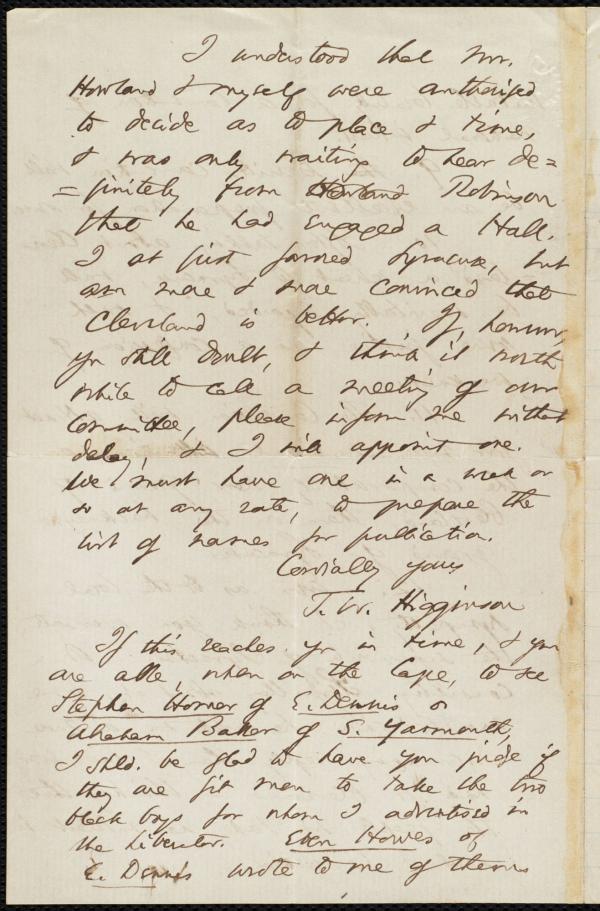 I understood that Mr.
Howland & myself were authorized
to decide as to place & time,
& was only waiting to hear de=
=finitely from Howland Robinson
that he had engaged a Hall.
I at first favored Syracuse, but
am more & more convinced that
Cleveland is better. If, however,
yu still doubt, & think it worth
while to call a meeting of our
Committee, please inform me without
delay, & I will appoint one.
We must have one in a week or
so at any rate, to prepare the
list of names for publication.
Cordially yours
T. W. Higginson
If this reaches yu in time, & you
are able, when on the Cape, to see
Stephen Homer of E. Dennis or
Abraham Baker of S. Yarmouth,
I shld. be glad to have you judge if
they are fit men to take the two
black boys for whom I advertised in
the Liberator. Eben Howes of
E. Dennis wrote to me of them